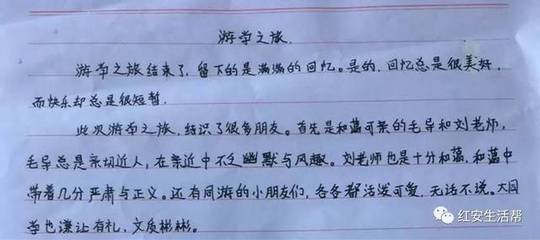 游学之旅.
游学之旅结束了,留下的是满满的回忆。是的,回忆总是很美好,
而快乐却总是很短暂.
此次游学之旅,结识了很多朋友。首先是和蔼可亲的毛导和刘老师,
毛导总是亲切近人,在亲近中不乏幽默与风趣。刘老师也是十分和蔼,和蔼中
带着几分严肃与正义。还有同游的小朋友们,各各都活泼可爱,无话不说。大同
学也谦让有礼,文质彬彬。
红安生活帮